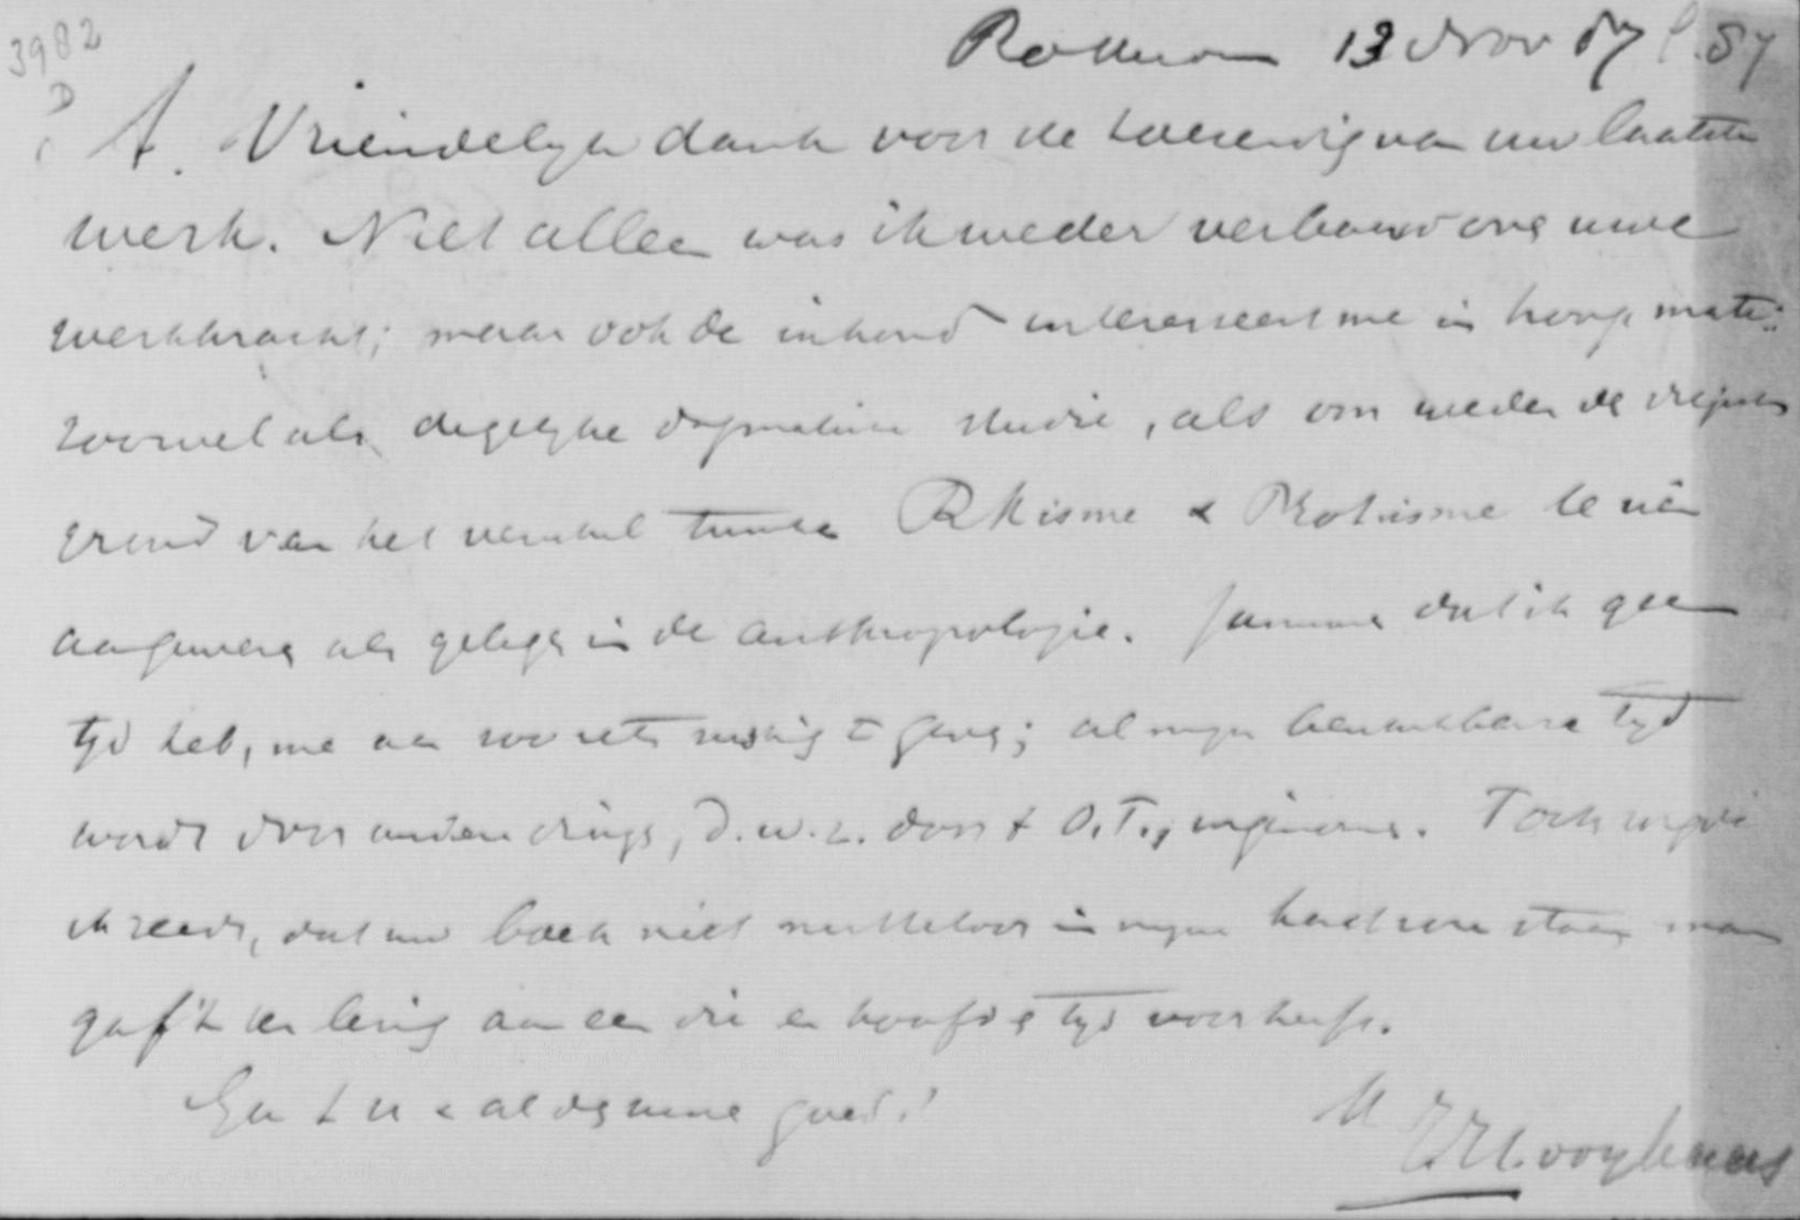 3982
Rotterdam 13 Nov 87
A. Vriendelijk dank voor de toezending van uw laatste
werk. Niet alleen was ik weder verbaasd over uwe
werkkracht; maar ook de inhoud interesseert me in hooge mate:
zoowel als degelijke dogmatische studie, als om weder de diepste
grond van het verschil tusschen RKisme & Protisme te zien
aangewezen als gelegen in de anthropologie. Jammer dat ik geen
tijd heb, me aan zoo iets rustig te geven; al mijn beschikbare tijd
wordt door andere dingen, d.w.z. door t O.T., ingenomen. Toch
ik reeds, dat uw boek niet nutteloos in mijne kast zou staan maar
gaf 't ter lening aan een die er hoofd & tijd voor heeft.
Ga t u & al de uwen goed!